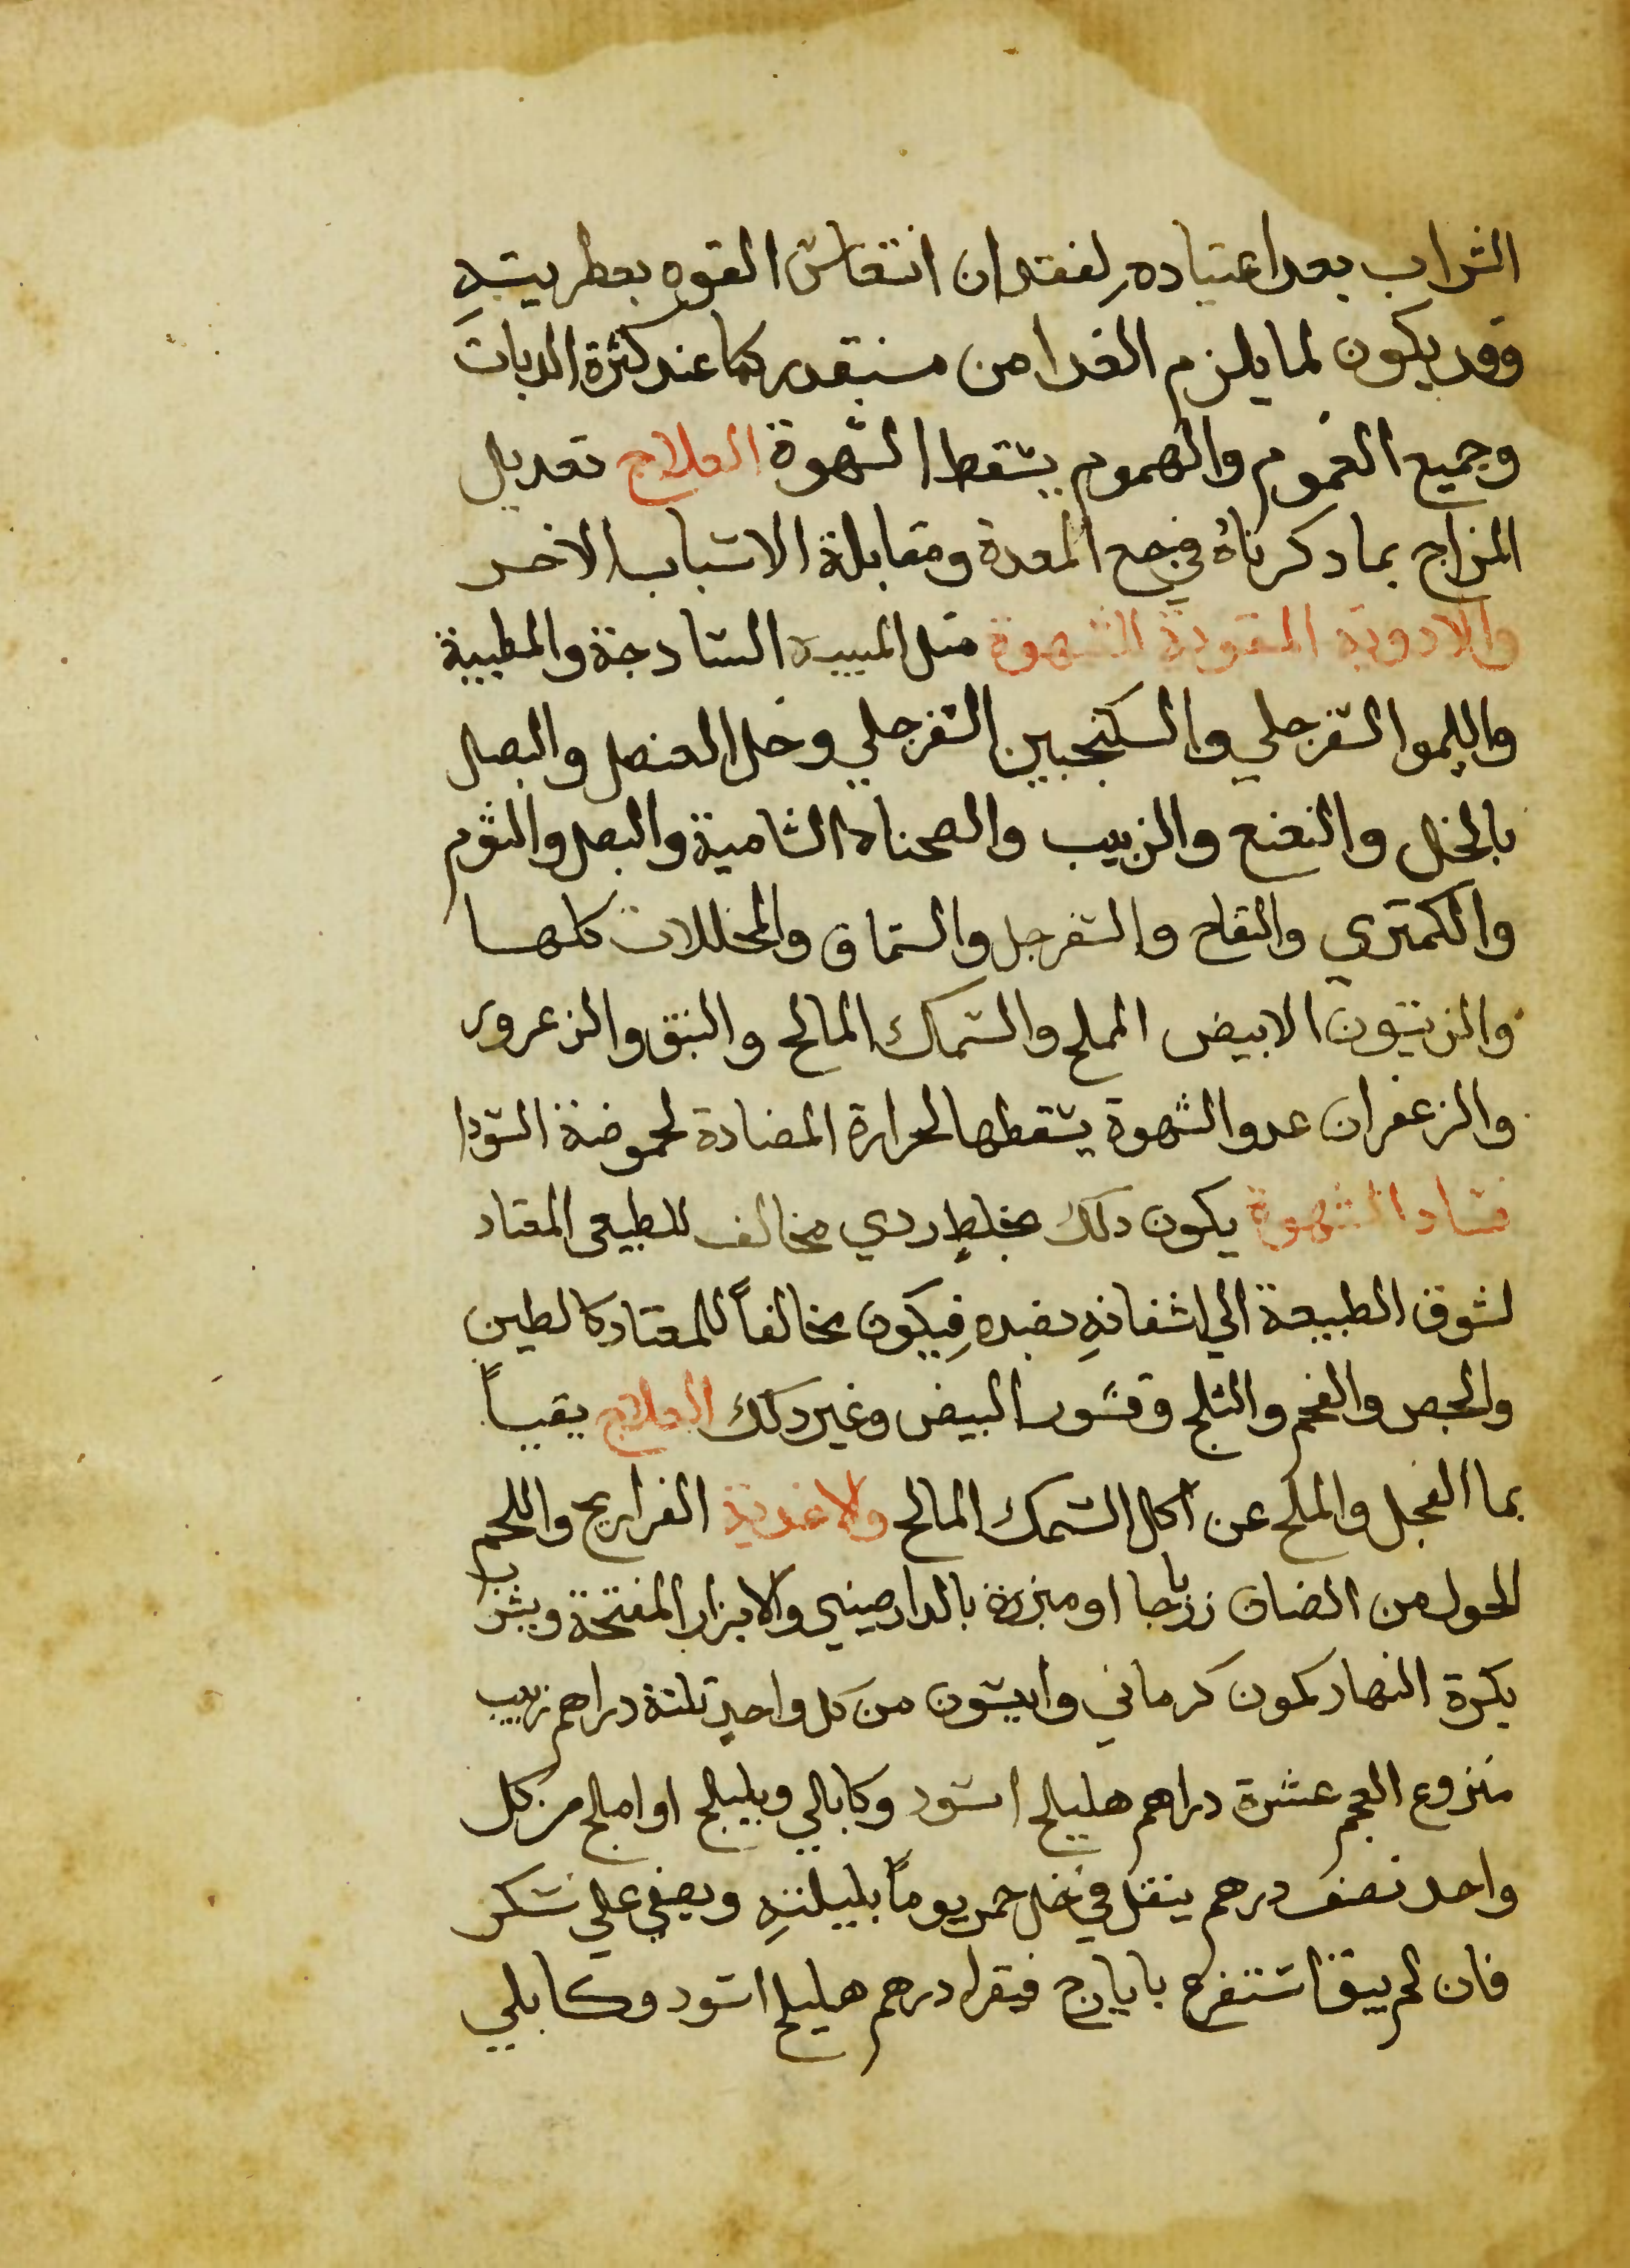 الشراب بعد اعتياده لفقدان انتعاش القوه بعطريتهِ
وقد يكون لما يلزم الغدا من مستقدر كما عند كثرة الدبات
وجميع الغموم والهموم يسقط الشهوة العلاج تعديل
المزاج بما دكرناهُ في جع المعدة ومقابلة الاسباب الاخر
والادوية المقوية الشهوة مثل الميبه السادجة والمطيبية
والليموا السفرجلي والسكنجبين السفرجلي وخل العنصل والبصل
بالخل والنعنع والزبيب والصحناه الشامية والبصل والثوم
والكمتري والتفاح والسفرجل والسماق والمخللات كلها
والزيتون الابيض المملح والسمك المالح والنبق والزعرور
والزعفران عدو الشهوة يسقطها لحرارة المضادة لحموضة السودا
فساد الشهوة يكون دلك بخلطٍ ردي مخالف للطبيعي المعتاد
لشوق الطبيعة الي اشفانهِ بضدهِ فيكون مخالفاً للمعتاد كالطين
والجص والفحم والثلج وقشور البيض وغير دلك العلاج يقيياً
بما الفجل والملح عن اكل السمك المالح والاغدية الفراريج واللحم
الحولي من الضان زرباجا او مبزرة بالدارصيني والابزار المفتحة ويشرب
بكرة النهار كمون كرماني وانيسون من كل واحدٍ تلتة دراهم زبيب
منزوع العجم عشرة دراهم هليلج اسود وكابالي وبليلج او املج من كل
واحد نصف درهم ينقل في خل خمر يوماً بليلتهِ ويصفي علي سكر
فان لم يبق استفرع باياارج فيقرا درهم هليلج اسود وكابلي